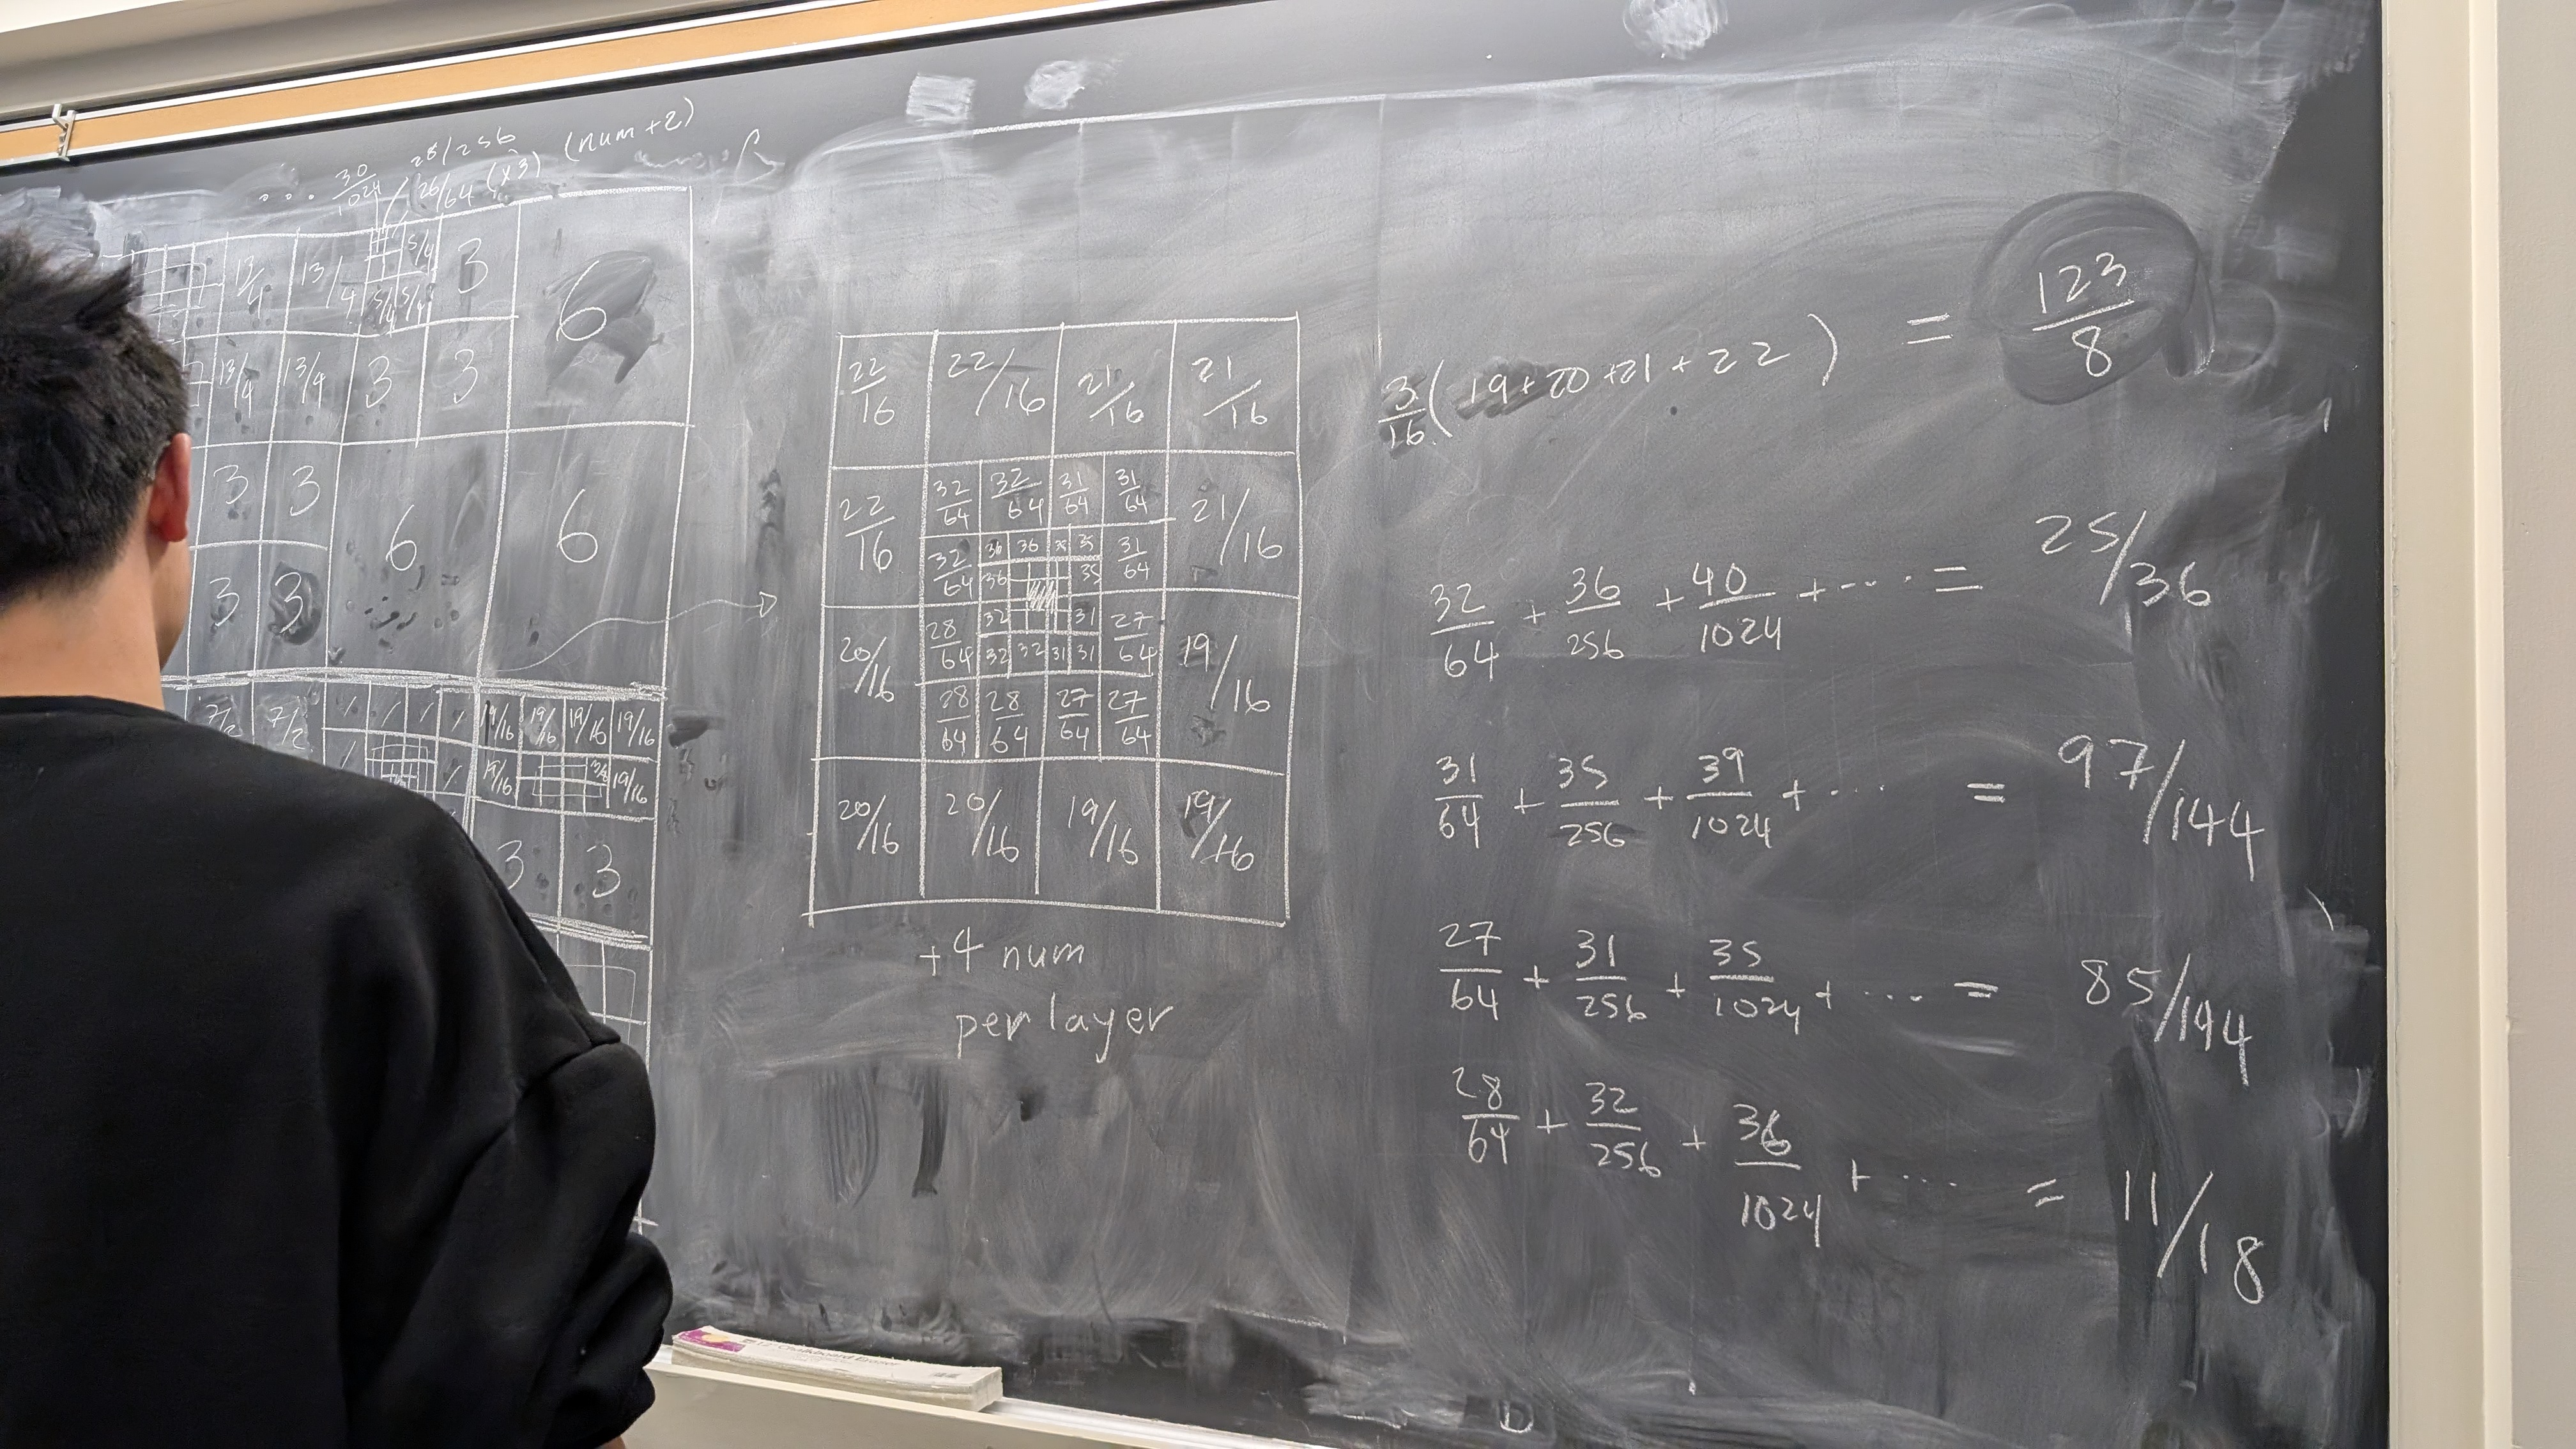 28/256
... 30/1024 / 26/64 (x3) (num+2)
13/4 13/4 5/4 3 6
5/4 5/4
13/4 13/4 3 3
3 3 6 6
3 3
7/2 7/2 19/16 19/16 19/16 19/16
19/16 19/16
3 3
22/16 22/16 21/16 21/16
22/16 32/64 32/64 31/64 31/64 21/16
32/64 36 36 35 31/64
36 35
20/16 28/64 32 31 27/64 19/16
32 32 31 31
28/64 28/64 27/64 27/64
20/16 20/16 19/16 19/16
+4 num
per layer
3/16 (19+20+21+22) = 123/8
32/64 + 36/256 + 40/1024 + ... = 25/36
31/64 + 35/256 + 39/1024 + ... = 97/144
27/64 + 31/256 + 35/1024 + ... = 85/144
28/64 + 32/256 + 36/1024 + ... = 11/18